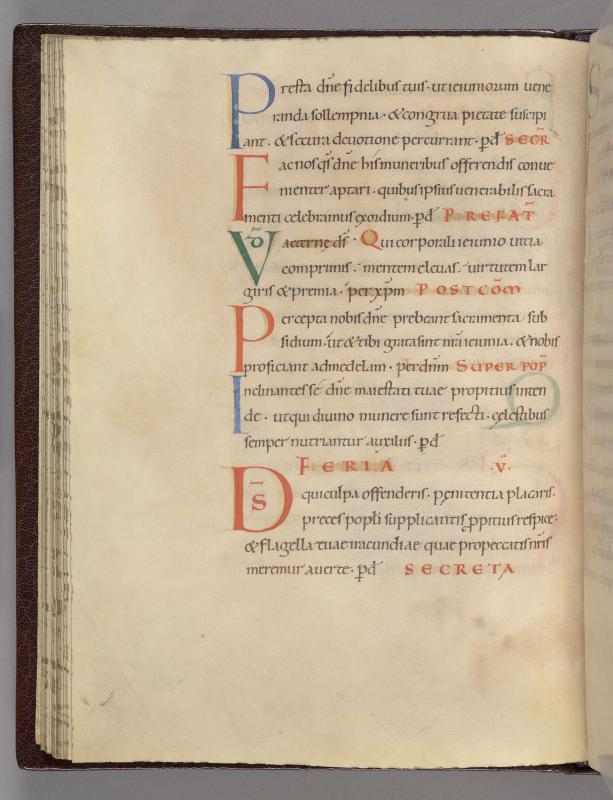 Presta dñe fidelibus tuis · ut ieiuniorum uene
randa sollempnia · & congrua pietate suscipi
ant · & secura deuotione percurrant · pd̄ SECR̄
Fac nos qs̄ dñe his muneribus offerendis conue
nienter aptari · quibus ipsius uenerabilis sacra
menti celebramus exordium · pd̄ PREFAT̄
VD̄ aeterne d̄s · Qui corporali ieiunio uitia
comprimis · mentem eleuas · uirtutem lar
giris & premia · per xp̄m POSTCOM̄
Percepta nobis dñe prebeant sacramenta sub
sidium · ut & tibi grata sint nr̄a ieiunia · & nobis
proficiant ad medelam · per dnm̄ SUPER POP̄
Inclinantes se dñe maiestati tuae propitius inten
de · ut qui diuino munere sunt refecti · cęlestibus
semper nutriantur auxiliis · pd̄
FERIA · V̄ ·
DS̄ qui culpa offenderis · pęnitentia placaris ·
preces popli supplicantis ꝓpitius respice ·
& flagella tuae iracundiae quae pro peccatis nr̄is
meremur auerte · pd̄ SECRETA